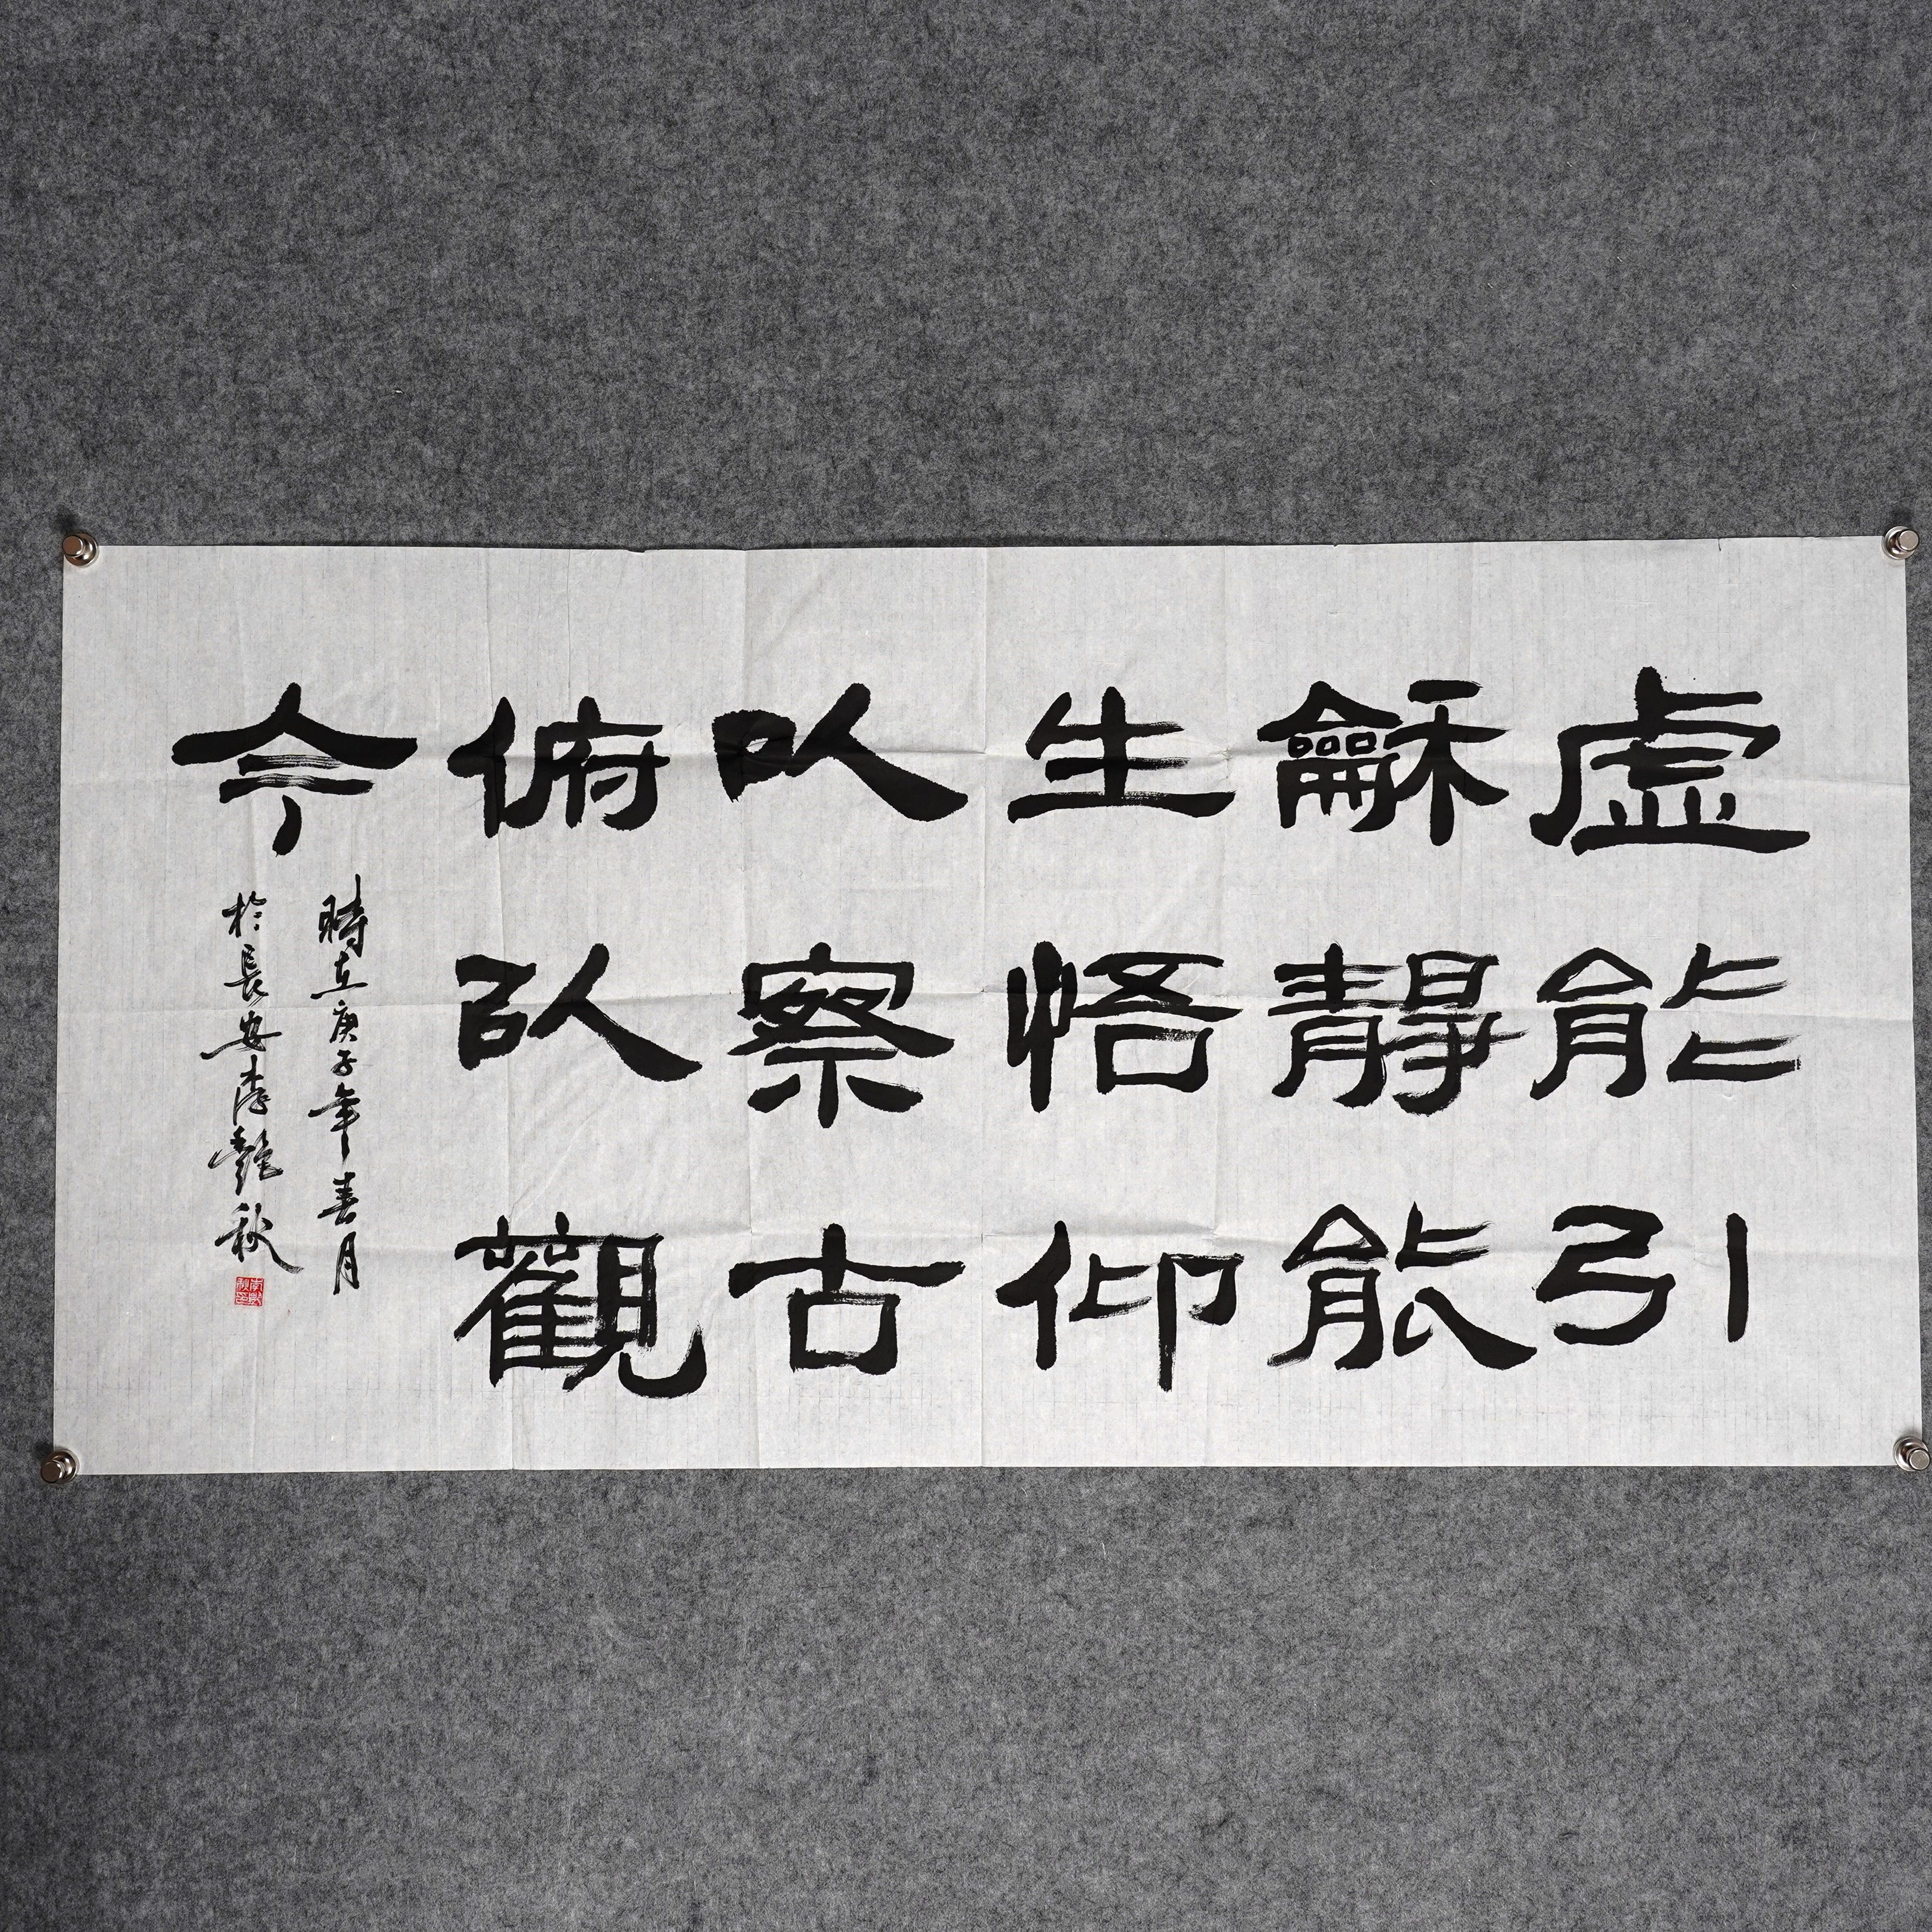 虛能引
龢靜能
生悟仰
以察古
俯以觀
今
時在庚子年春月
於長安李艷秋